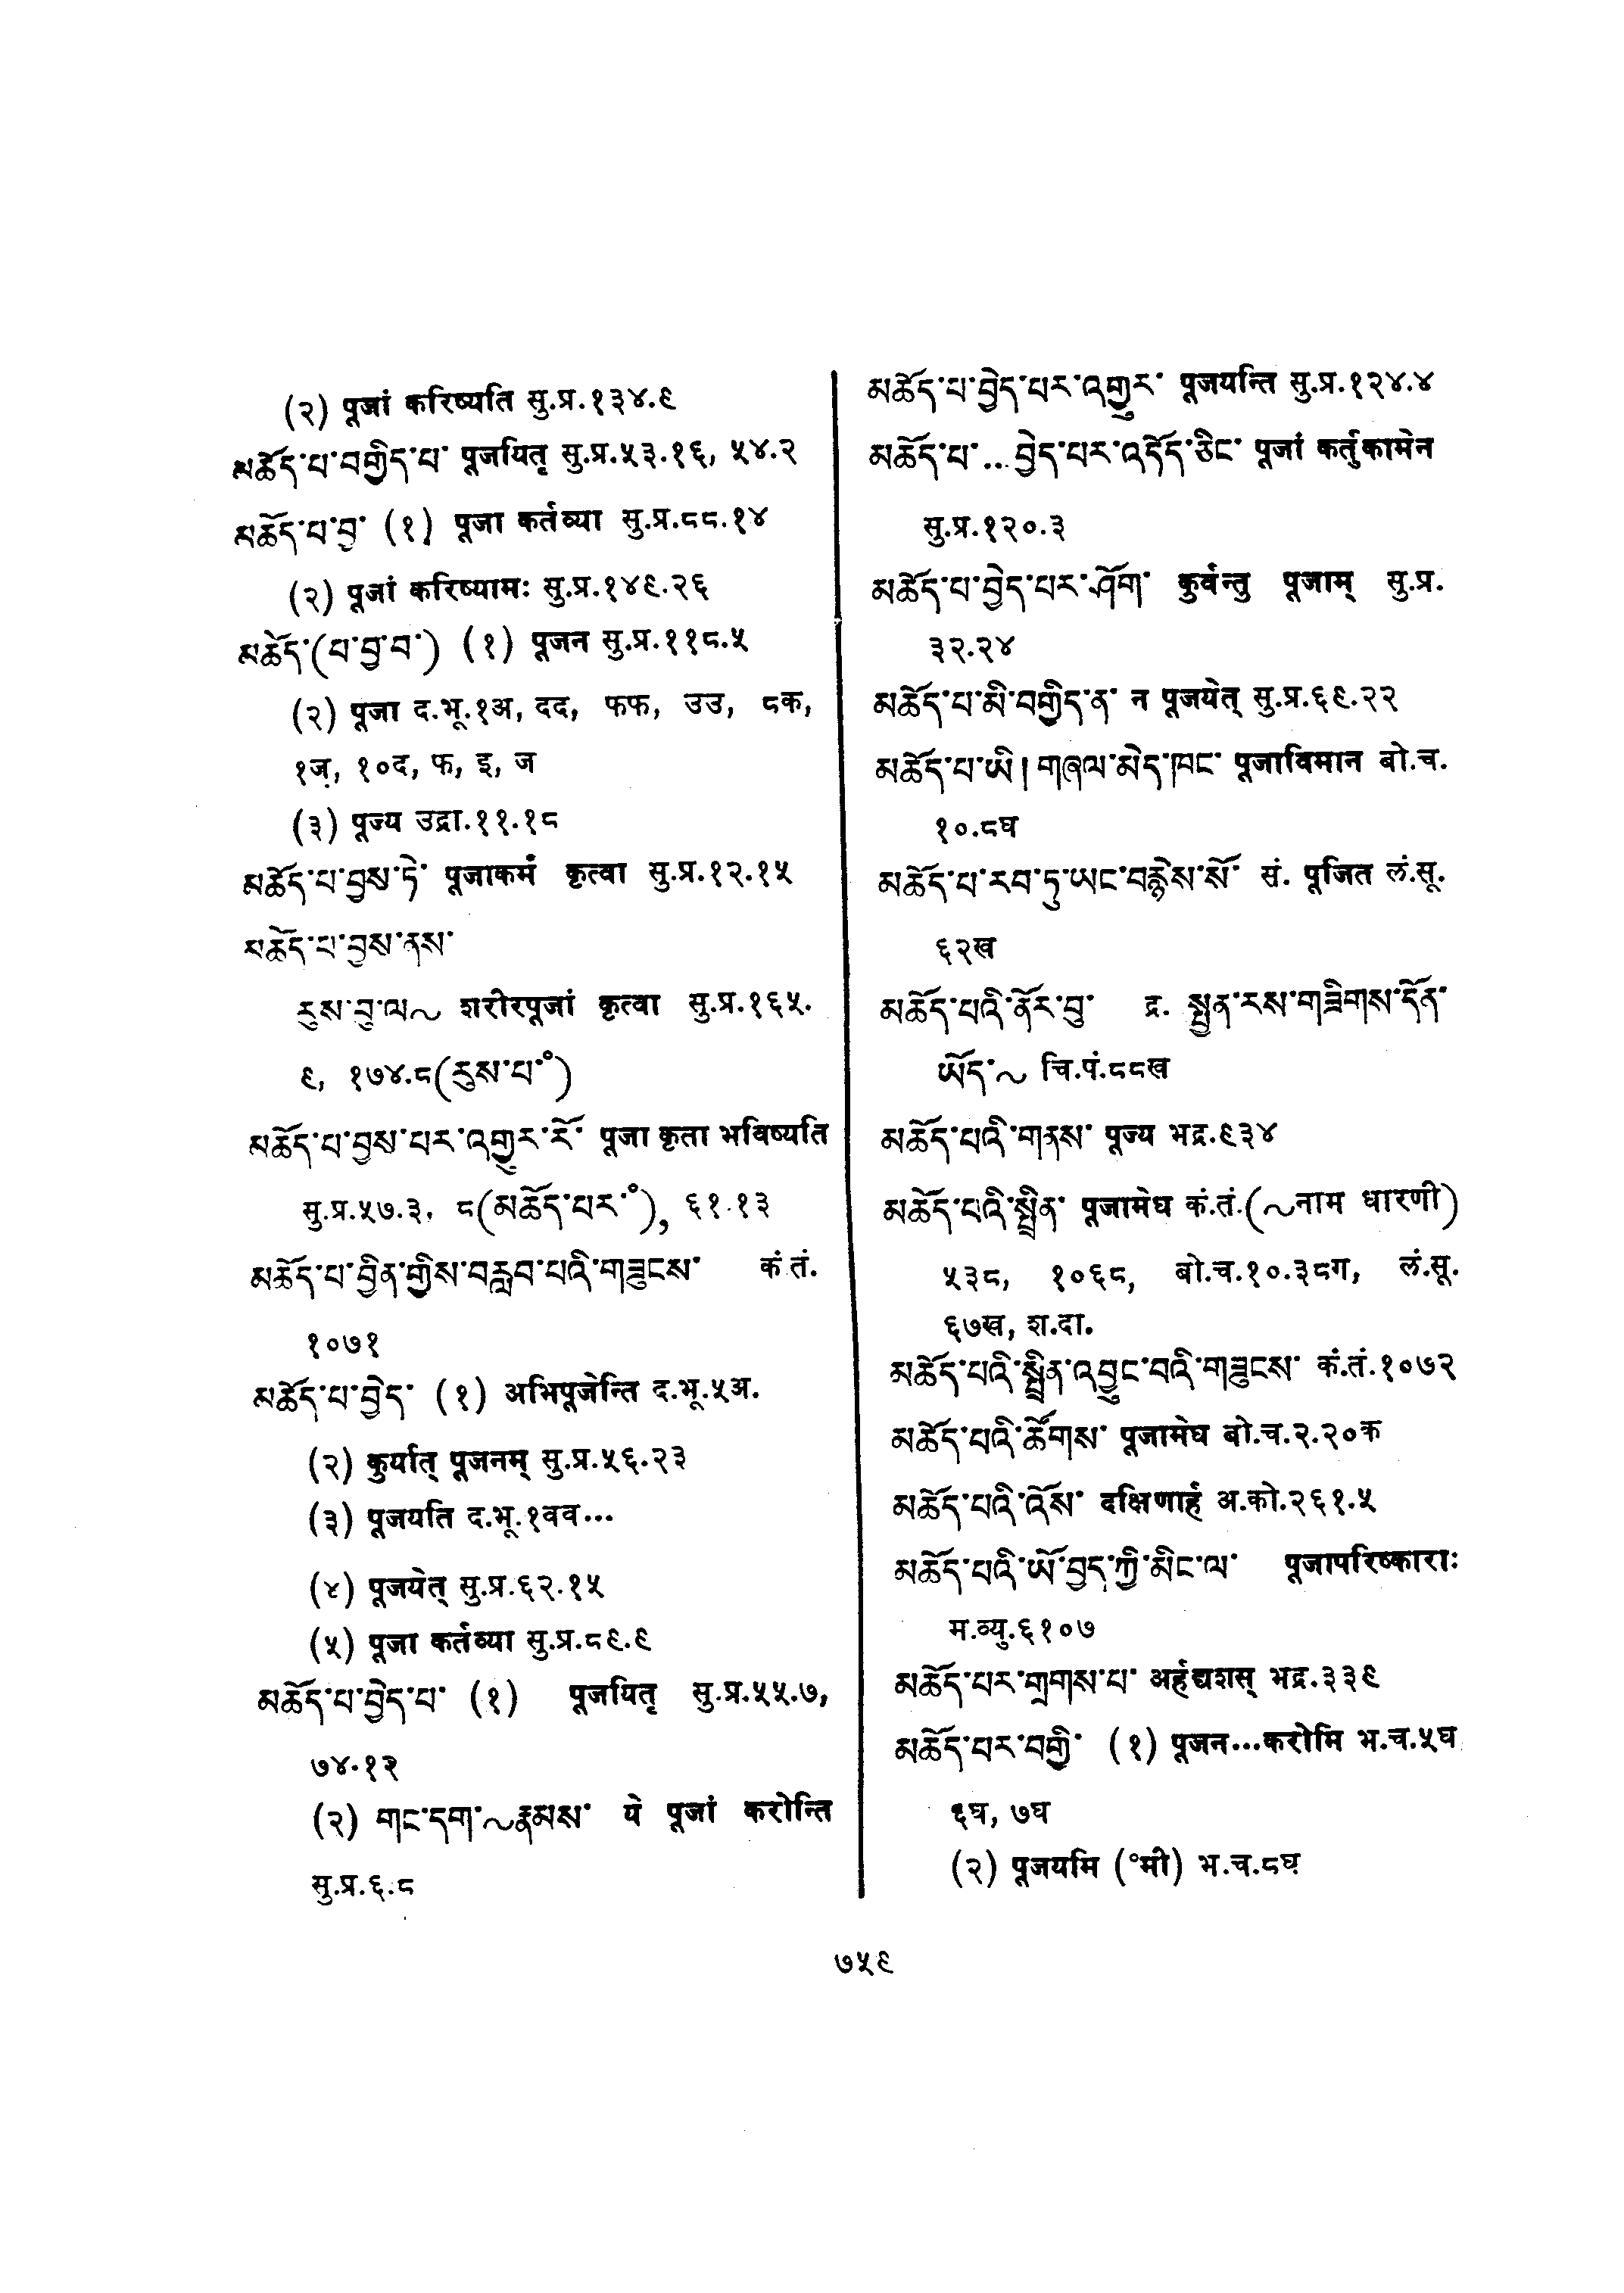 (२) पूजां करिष्यति सु.प्र.१३४.९
མཆོད་པ་བགྱིད་པ་ पूजयितृ सु.प्र.५३.१६, ५४.२
མཆོད་པ་བྱ་ (१) पूजा कर्तव्या सु.प्र.८८.१४
(२) पूजां करिष्यामः सु.प्र.१४९.२६
མཆོད་(པ་བྱ་བ་) (१) पूजन सु.प्र.११८.५
(२) पूजा द.भू.१अ, दद, फफ, उउ, ८क,
१ज़, १०द, फ, इ, ज
(३) पूज्य उद्रा.११.१८
མཆོད་པ་བྱས་ཏེ་ पूजाकर्म कृत्वा सु.प्र.१२.१५
མཆོད་པ་བྱས་ནས་
རུས་བུ་ལ~ शरीरपूजां कृत्वा सु.प्र.१६५.
९, १७४.८(རུས་པ་°)
མཆོད་པ་བྱས་པར་འགྱུར་རོ་ पूजा कृता भविष्यति
सु.प्र.५७.३, ८(མཆོད་པར་°), ६१.१३
མཆོད་པ་བྱིན་གྱིས་བརླབ་པའི་གཟུངས་ कं.तं.
१०७१
མཆོད་པ་བྱེད་ (१) अभिपूजेन्ति द.भू.५अ.
(२) कुर्यात् पूजनम् सु.प्र.५६.२३
(३) पूजयति द.भू.१वव...
(४) पूजयेत् सु.प्र.६२.१५
(५) पूजा कर्तव्या सु.प्र.८९.९
མཆོད་པ་བྱེད་པ་ (१) पूजयितृ सु.प्र.५५.७,
७४.१२
(२) གང་དག་~རྣམས་ ये पूजां करोन्ति
सु.प्र.६.८
མཆོད་པ་བྱེད་པར་འགྱུར་ पूजयन्ति सु.प्र.१२४.४
མཆོད་པ་...བྱེད་པར་འདོད་ཅིང་ पूजां कर्तुकामेन
सु.प्र.१२०.३
མཆོད་པ་བྱེད་པར་ཤོག་ कुर्वन्तु पूजाम् सु.प्र.
३२.२४
མཆོད་པ་མི་བགྱིད་ན་ न पूजयेत् सु.प्र.६९.२२
མཆོད་པ་ཡི།གཞལ་མེད་ཁང་ पूजाविमान बो.च.
१०.८घ
མཆོད་པ་རབ་ཏུ་ཡང་བརྙེས་སོ་ सं. पूजित लं.सू.
६२ख
མཆོད་པའི་ནོར་བུ་ द्र. སྤྱན་རས་གཟིགས་དོན་
ཡོད་~ चि.पं.८८ख
མཆོད་པའི་གནས་ पूज्य भद्र.९३४
མཆོད་པའི་སྤྲིན་ पूजामेघ कं.तं.(~नाम धारणी)
५३८, १०६८, बो.च.१०.३८ग, लं.सू.
६७ख, श.दा.
མཆོད་པའི་སྤྲིན་འབྱུང་བའི་གཟུངས་ कं.तं.१०७२
མཆོད་པའི་ཚོགས་ पूजामेघ बो.च.२.२०क
མཆོད་པའི་འོས་ दक्षिणार्ह अ.को.२६१.५
མཆོད་པའི་ཡོ་བྱད་ཀྱི་མིང་ལ་ पूजापरिष्काराः
म.व्यु.६१०७
མཆོད་པར་གྲགས་པ་ अर्हद्यशस् भद्र.३३९
མཆོད་པར་བགྱི་ (१) पूजन...करोमि भ.च.५घ
६घ, ७घ
(२) पूजयमि (°मी) भ.च.८घ
७५९